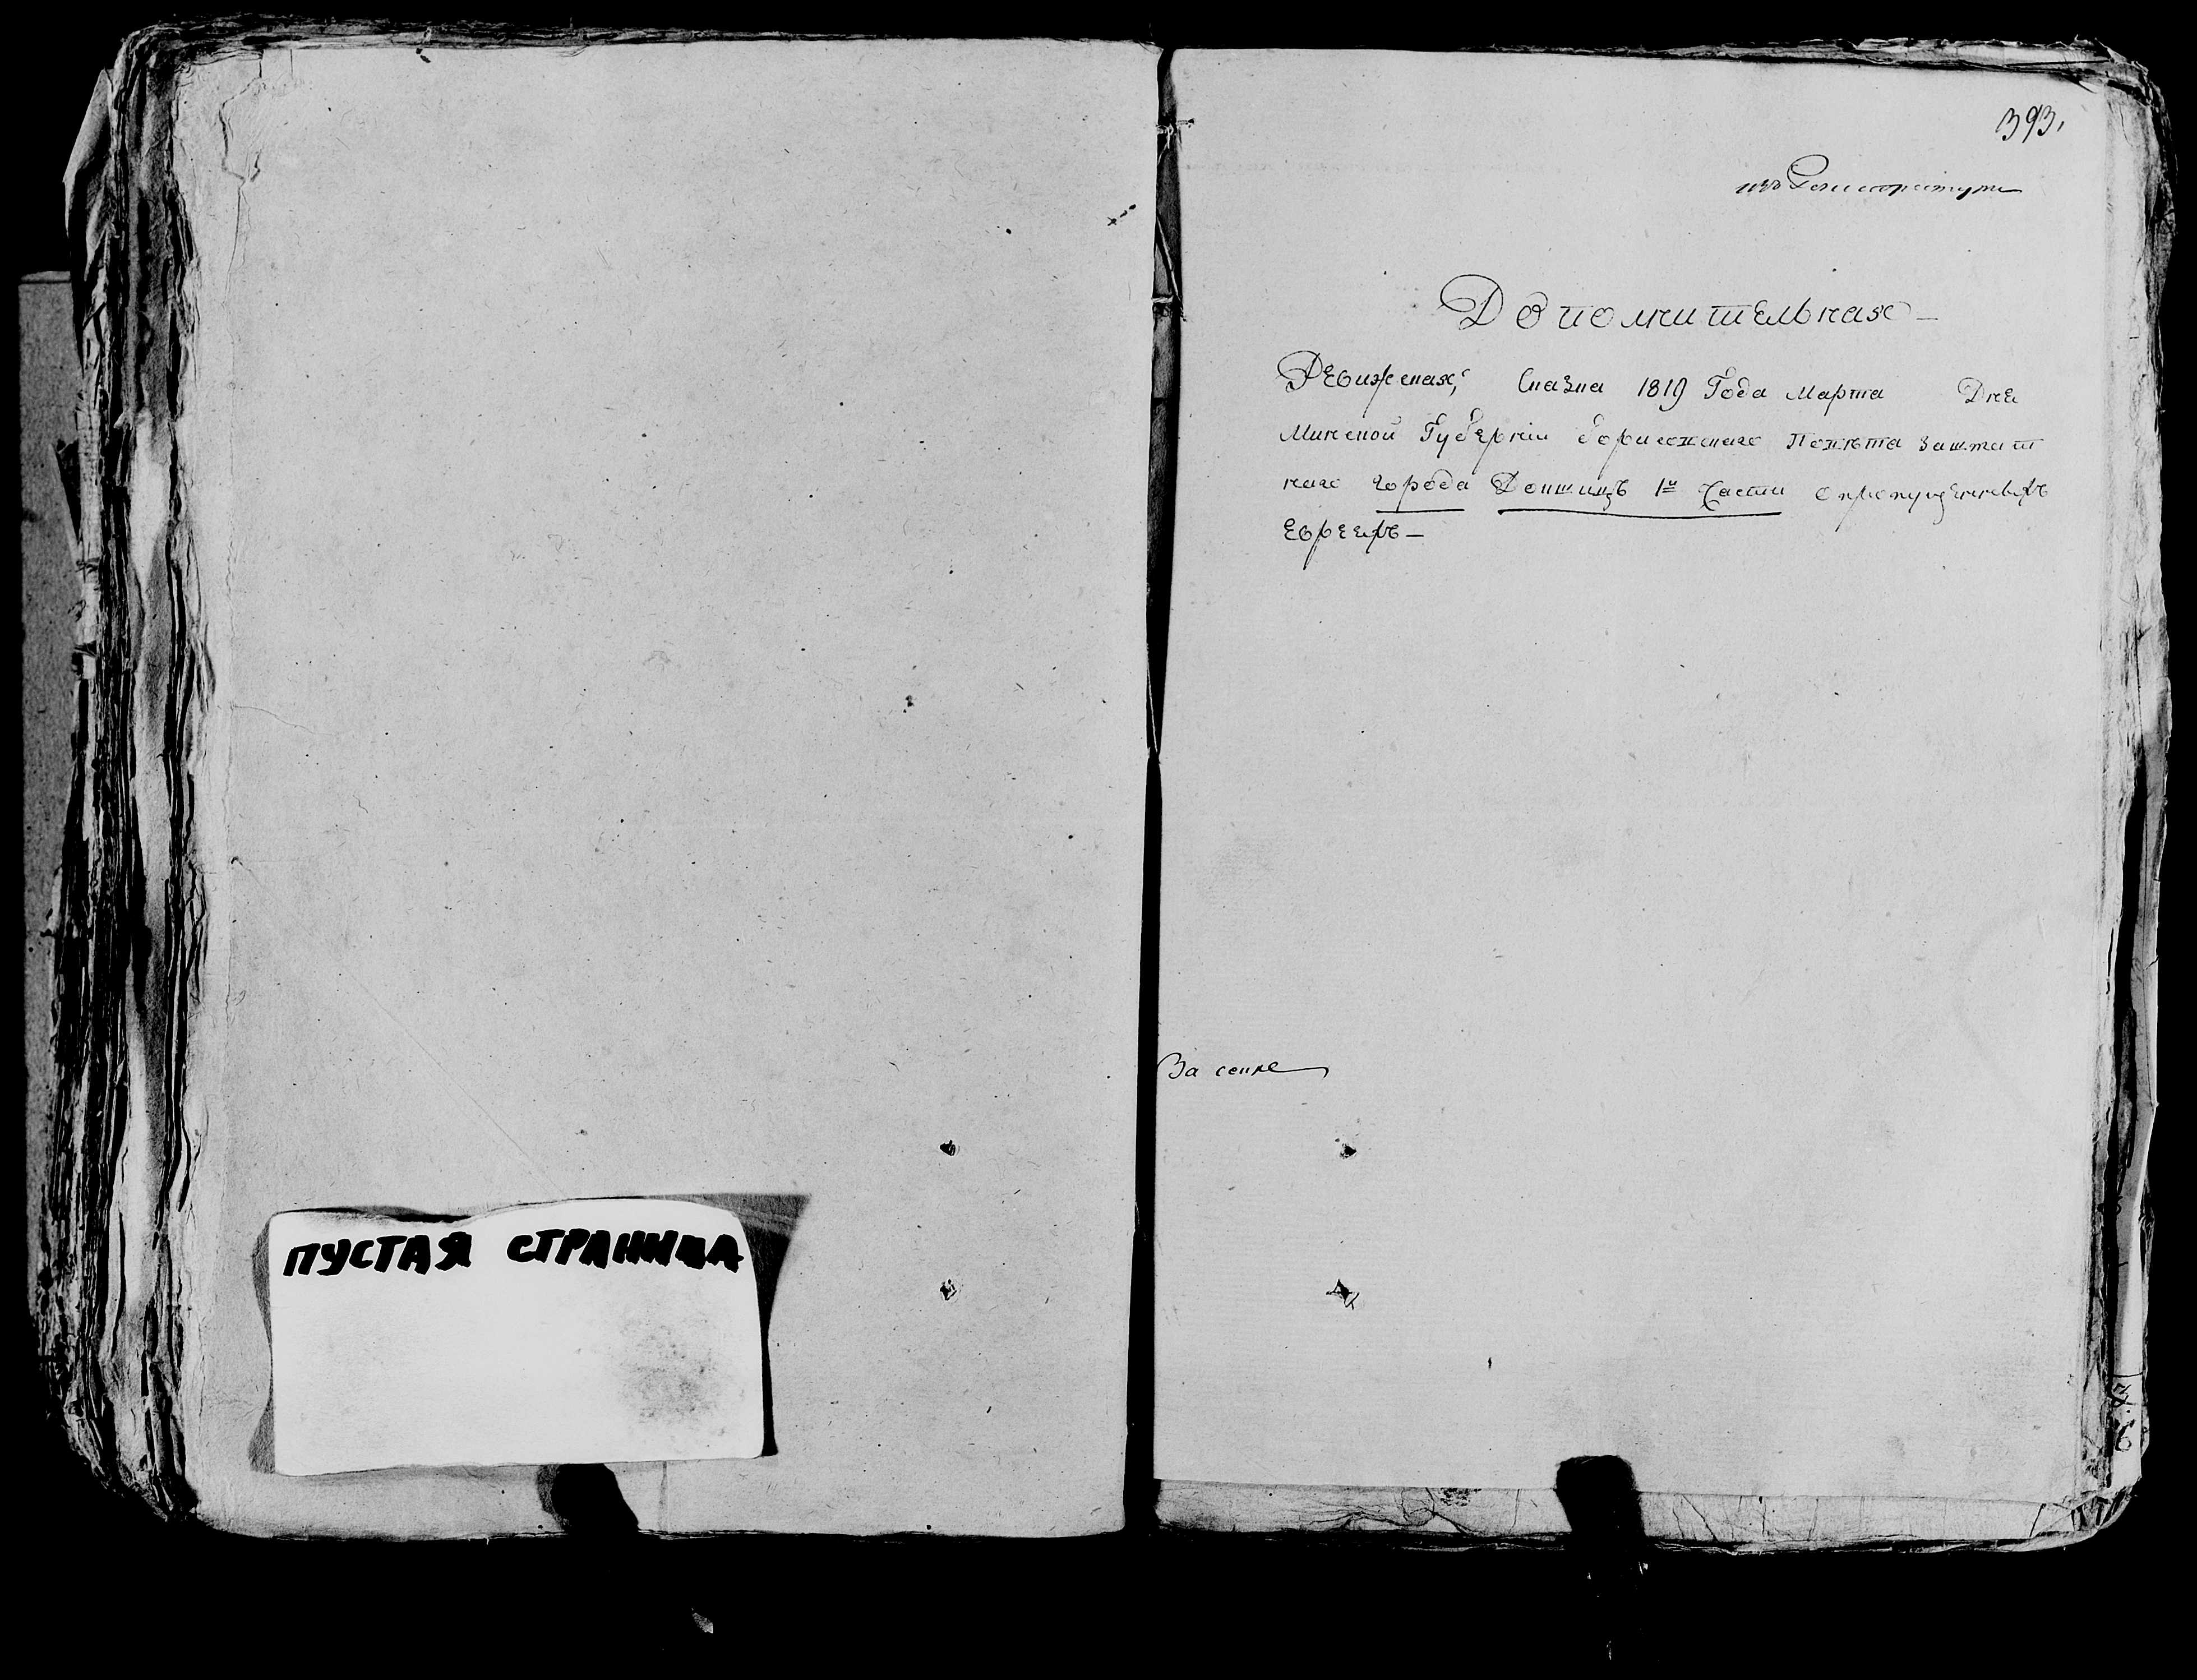 ПУСТАЯ СТРАНИЦА
393.
изъ
Дополнительная —
Ревижская, Сказка 1819 Года Марта Дня
Минской Губернiи Борисовскаго Повѣта Заштат
наго города Докшицъ 1й Части о пропущенныхъ
Евреихъ —
За